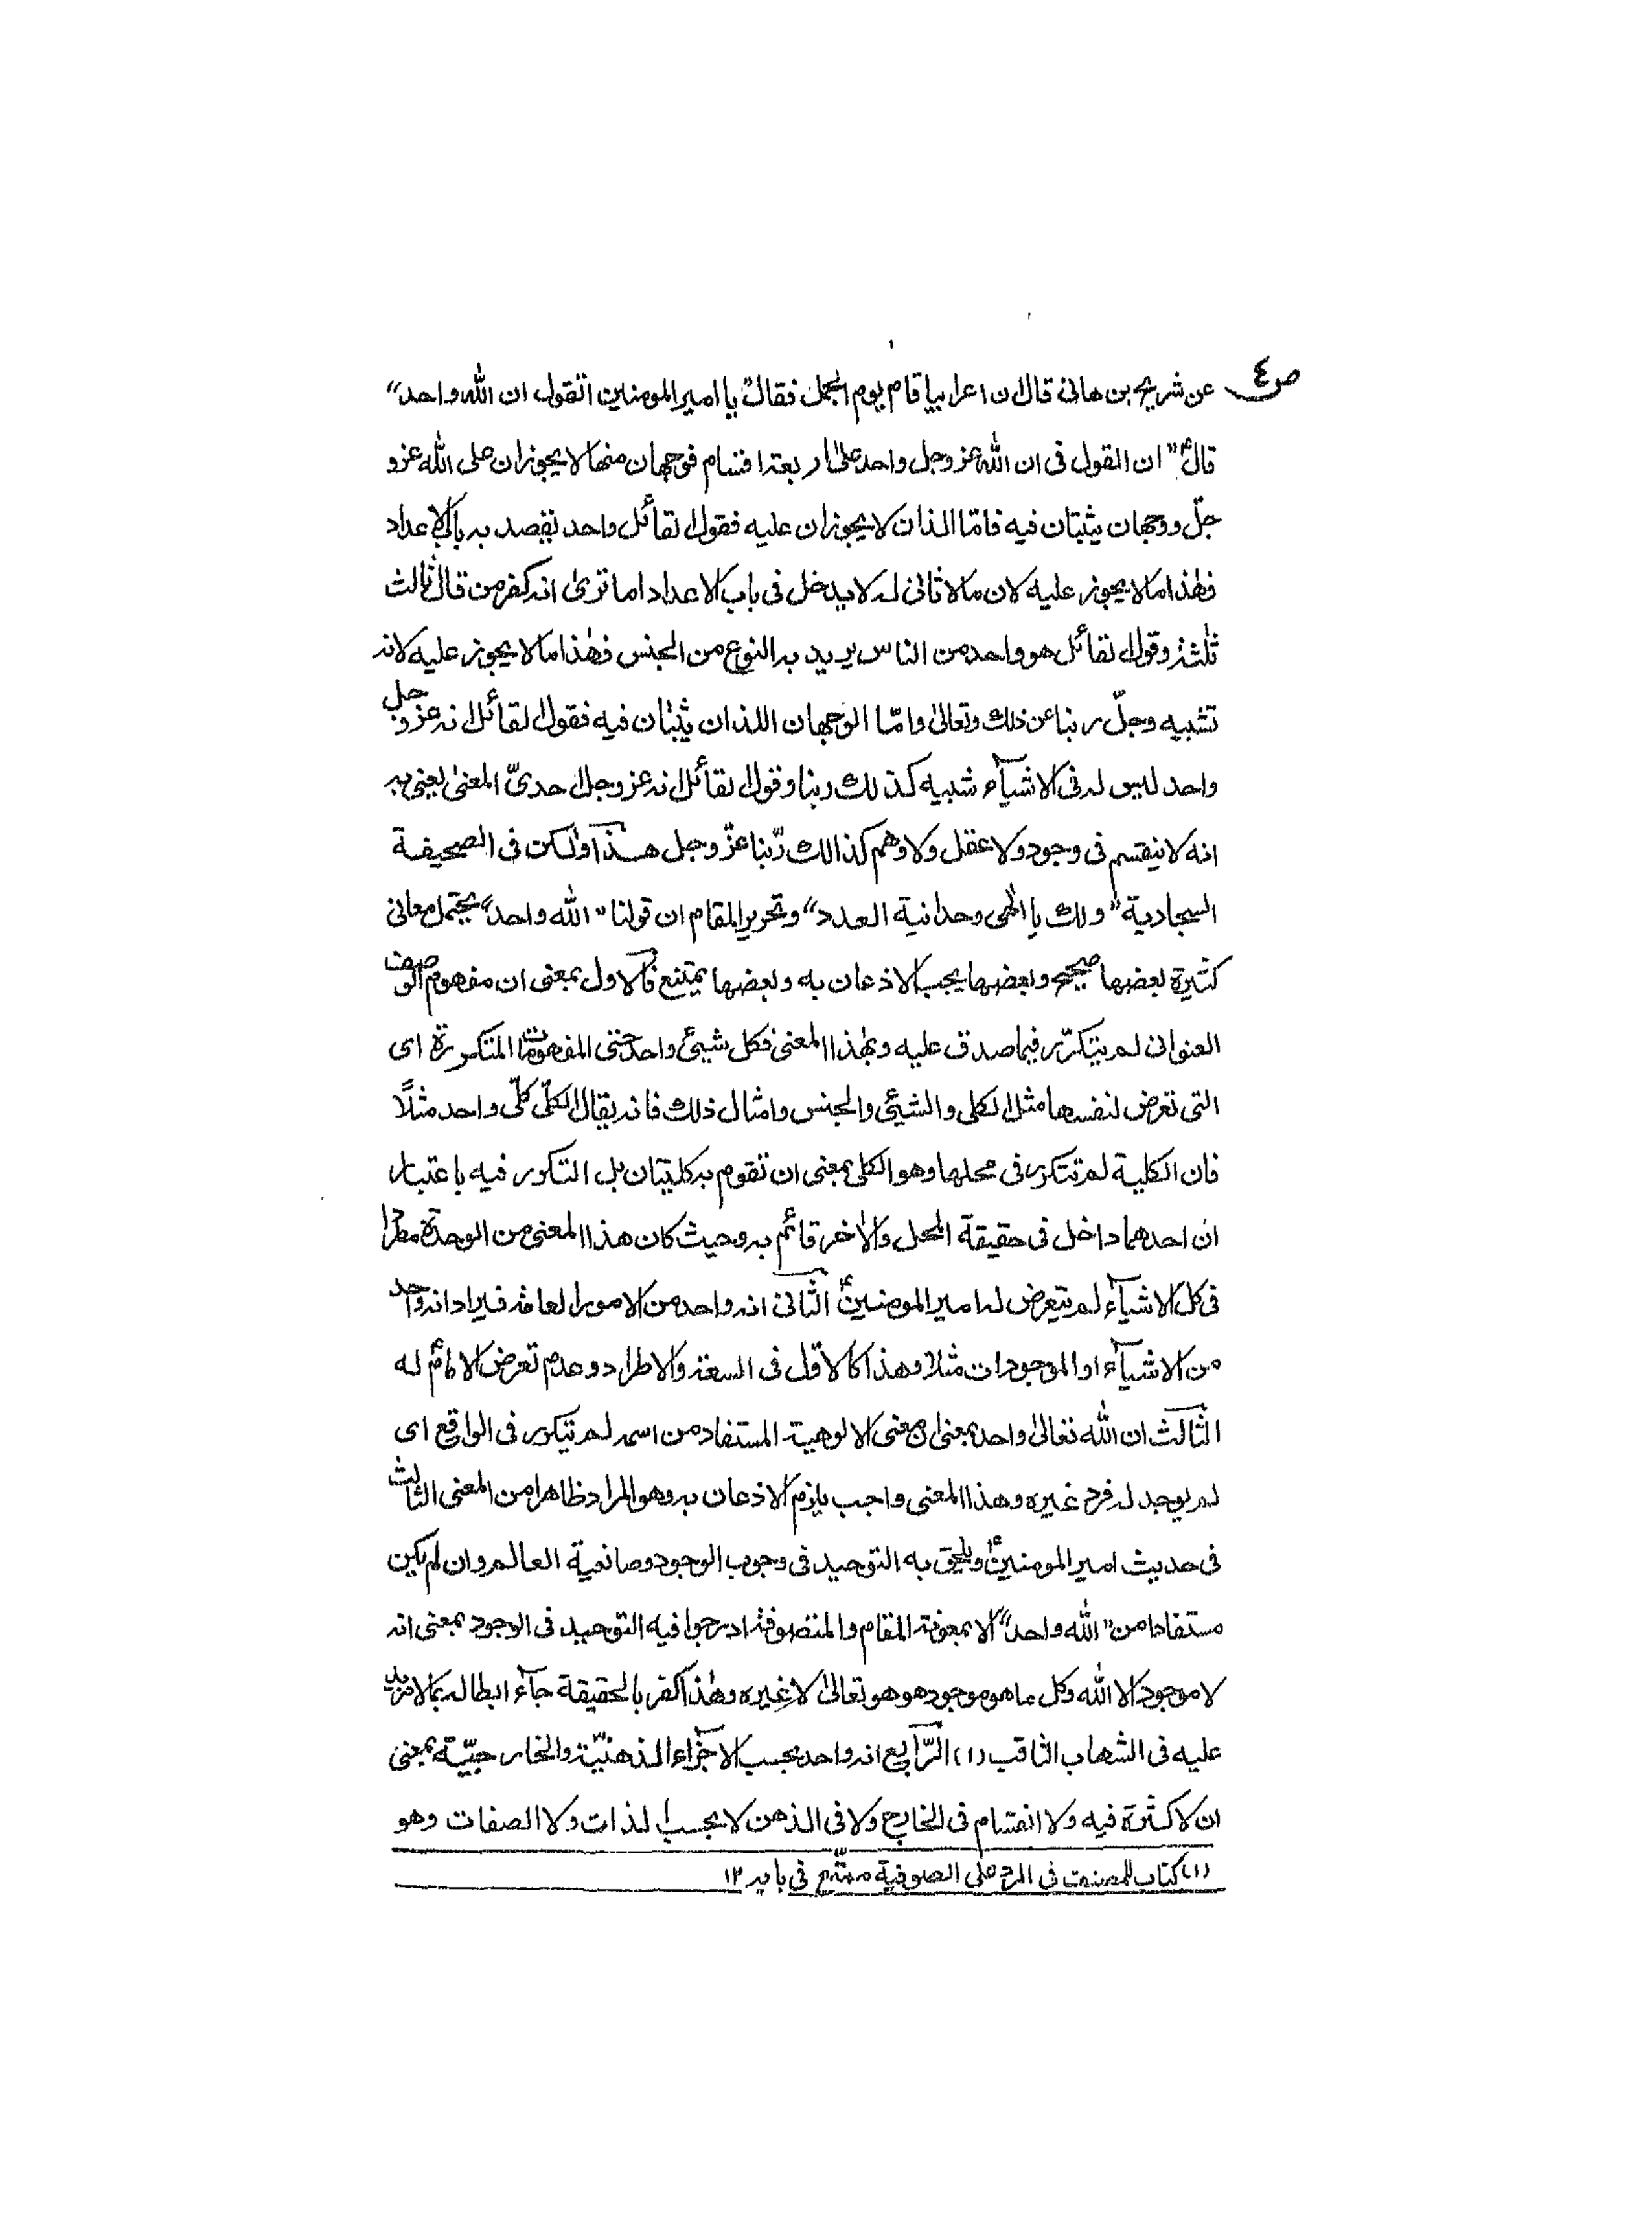 ص٤
عن شريح بن هانى قال ان اعرابيا قام يوم الجمل فقال يا امير المومنين اتقول ان الله واحد"
قالؑ "ان القول فى ان الله عز وجل واحد على اربعة اقسام فوجهان منها لا يجوزان على الله عز و
جلّ ووجهان يثبتان فيه فامّا الذان لا يجوزان عليه فقول القائل واحد يقصد به باب الاعداد
فهٰذا ما لا يجوز عليه لان ما لا ثانى له لا يدخل فى باب الاعداد اما ترىٰ انه كفر من قال ثالث
ثلٰثة وقول القائل هو واحد من الناس يريد به النوع من الجنس فهٰذا ما لا يجوز عليه لانه
تشبيه وجلّ ربنا عن ذلك وتعالىٰ وامّا الوجهان اللذان يثبتان فيه فقول القائل انه عز و جل
واحد ليس له فى الاشيآء شبيه كذلك ربنا وقول القائل انه عز وجل احدىّ المعنىٰ يعنى به
انه لا ينقسم فى وجود ولا عقل ولا وهم كذالك ربّنا عزّ وجل هذا ولكن فى الصحيفة
السجادية "ولك يا الٰهى وحدانية العدد" وتحرير المقام ان قولنا "الله واحد" يحتمل معانى
كثيرة بعضها صحيح وبعضها يجب الاذعان به وبعضها يمتنع فالاول بمعنى ان مفهوم الوصف
العنوانى لم يتكرّر فيما صدق عليه وبهٰذا المعنى فكل شيئ واحد حتى المفهومات المتكررة اى
التى تعرض لنفسها مثل الكلى والشيئ والجنس وامثال ذلك فانه يقال الكلّى كلّى واحد مثلاً
فان الكلية لم تتكرر فى محلها وهو الكلى بمعنى ان تقوم به كليتان بل التكرر فيه باعتبار
ان احدهما داخل فى حقيقة المحل والاٰخر قائم به وحيث كان هذا المعنى من الوحدة مطردا
فى كل الاشيآء لم يتعرض له امير المومنينؑ الثانى انه واحد من الامور العامة فيراد انه واحد
من الاشيآء او الموجودات مثلا وهذا كالاول فى السعة والاطراد وعدم تعرض الامامؑ له
الثالث ان الله تعالىٰ واحد بمعنى ان معنى الالوهية المستفاد من اسمه لم يتكرر فى الواقع اى
لم يوجد له فرد غيره وهذا المعنى واجب يلزم الاذعان به وهو المراد ظاهرا من المعنى الثالث
فى حديث امير المومنينؑ ويلحق به التوحيد فى وجوب الوجود وصانعية العالم وان لم يكن
مستفادا من "الله واحد" الا بمعونة المقام والمتصوفة ادرجوا فيه التوحيد فى الوجود بمعنى انه
لا موجود الا الله وكل ما هو موجود هو هو تعالىٰ لا غيره وهٰذا كفر بالحقيقة جآء ابطاله بما لا مزيد
عليه فى الشهاب الثاقب (١) الرّابع انه واحد بحسب الاجزاء الذهنيّة والخارجيّة بمعنى
ان لا كثرة فيه ولا انقسام فى الخارج ولا فى الذهن لا بحسب الذات ولا الصفات وهو
(١) كتاب للمصنف فى الرد على الصوفية في بابه ١٢